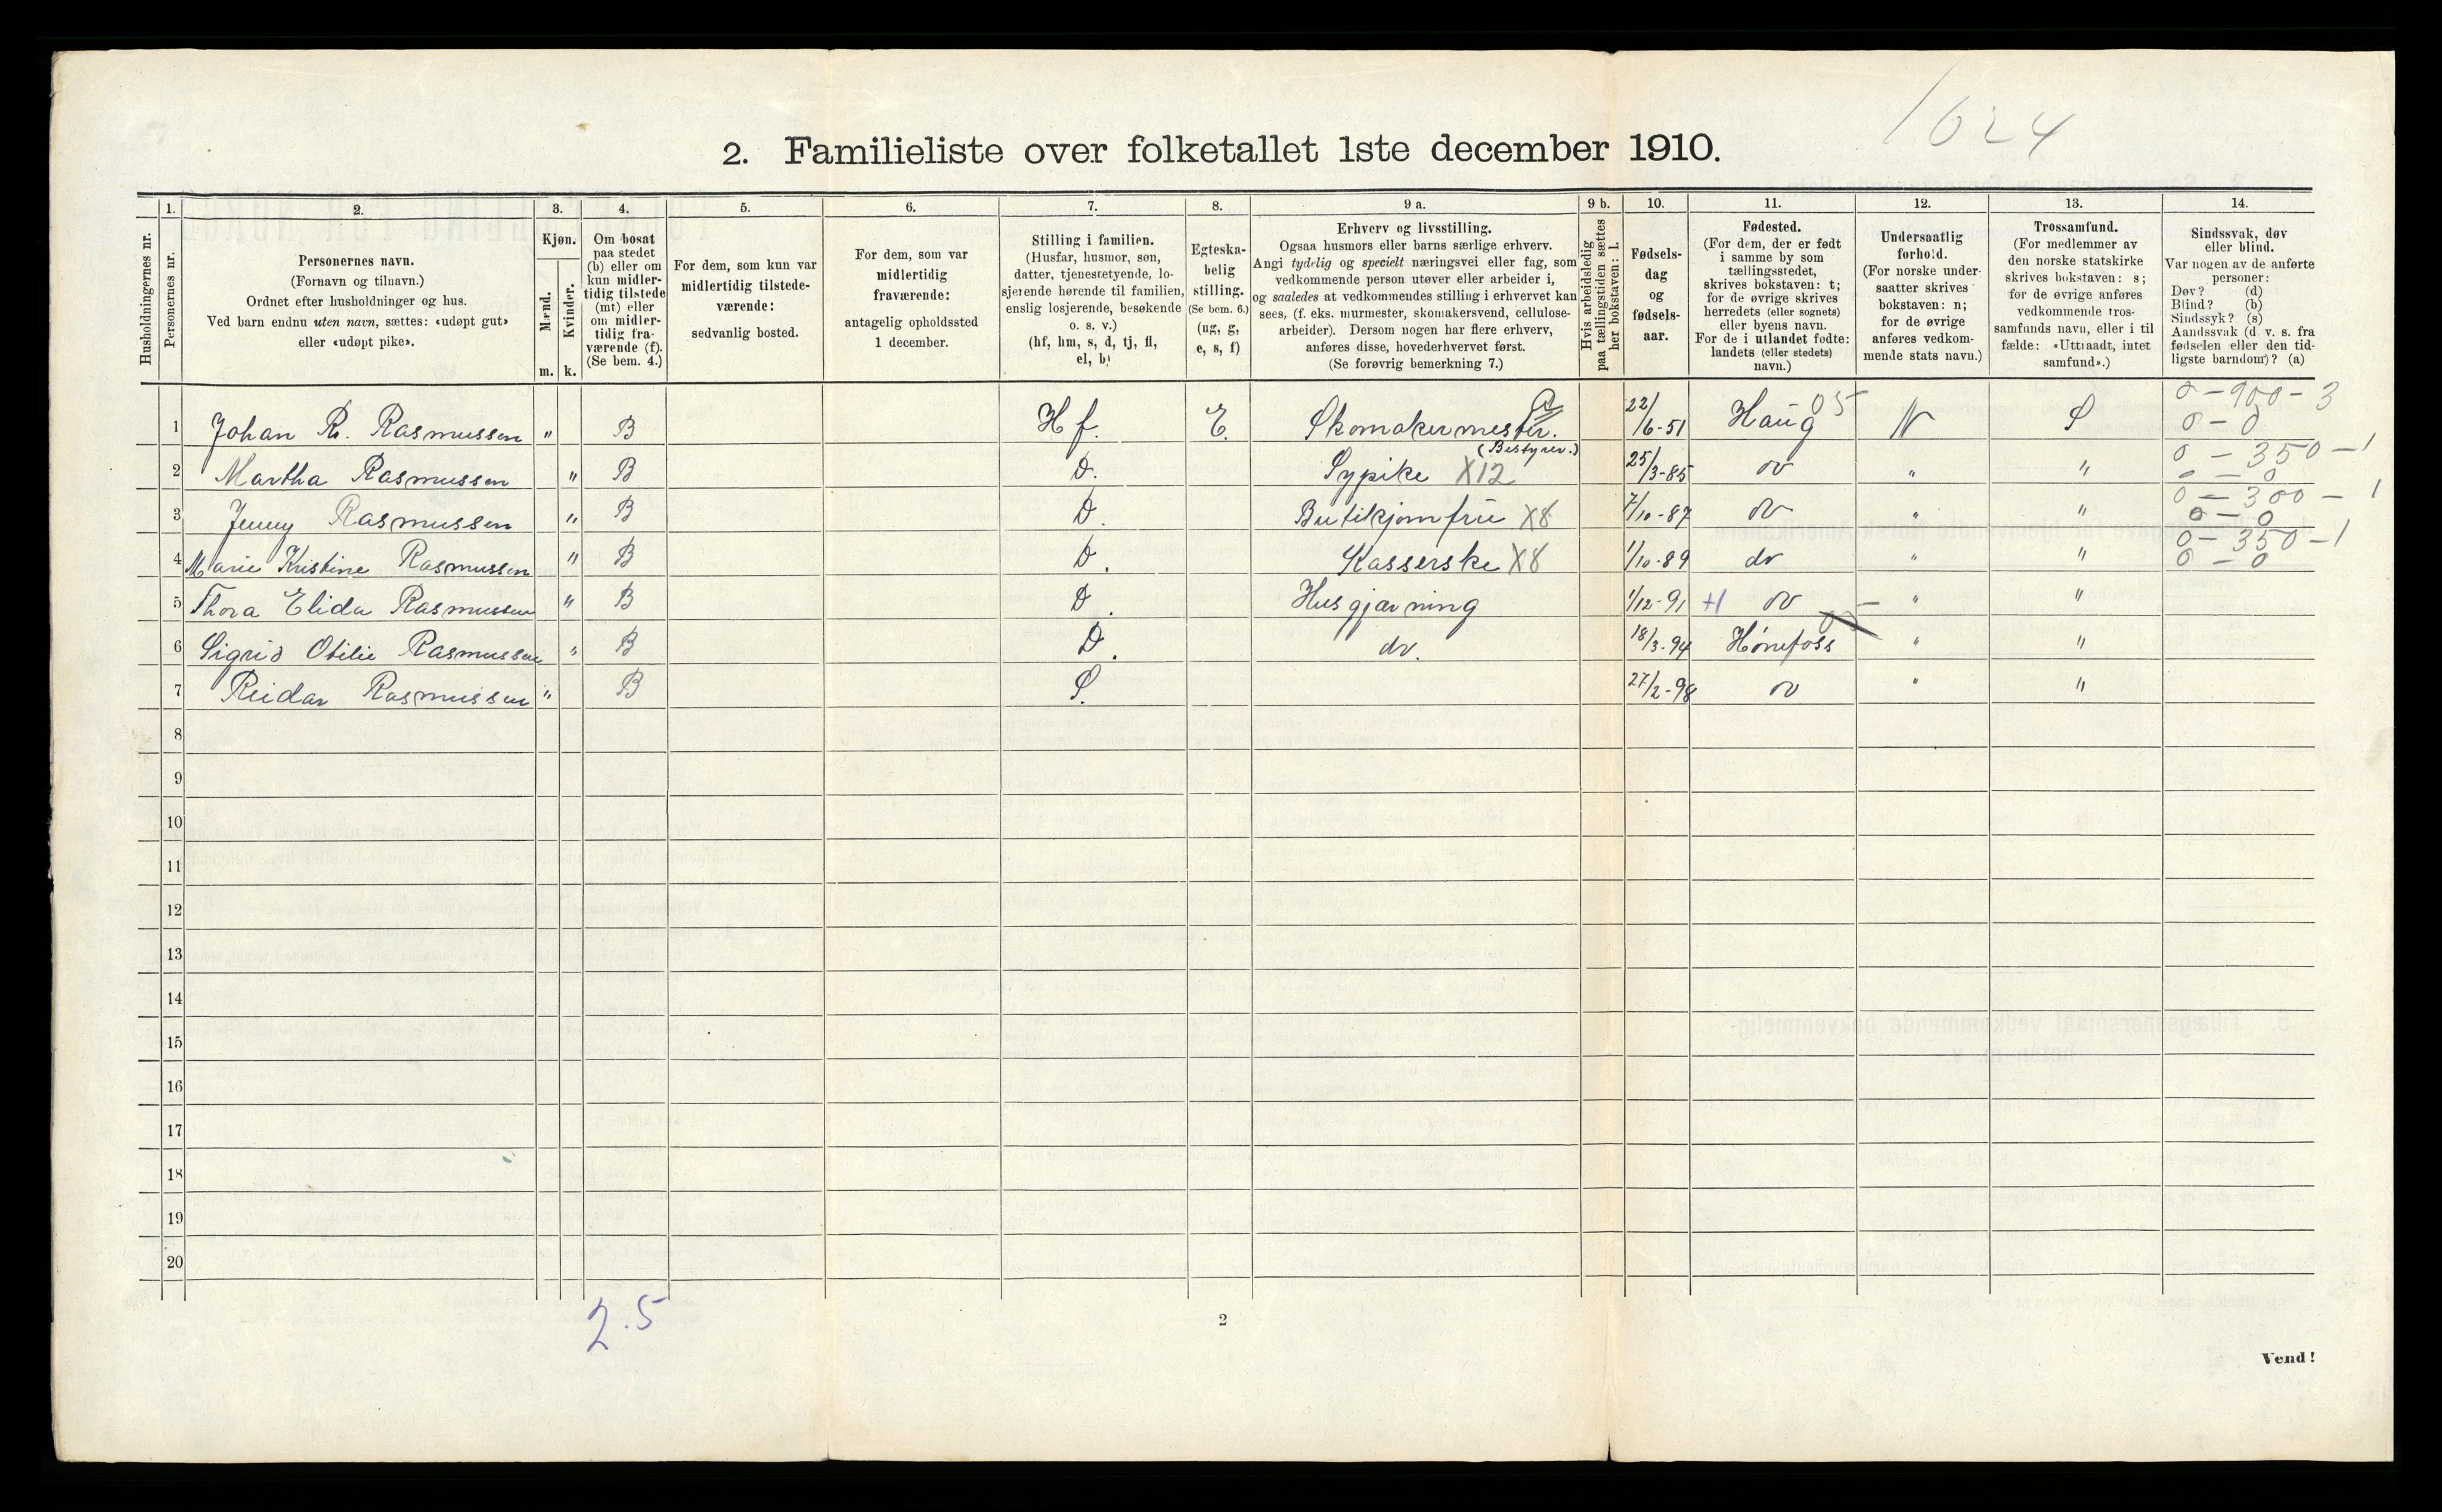 1624
2. Familieliste over folketallet 1ste december 1910.
Husholdningernes nr.
1. Personernes nr.
2. Personernes navn.
(Fornavn og tilnavn.)
Ordnet efter husholdninger og hus.
Ved barn endnu uten navn, sættes: «udøpt gut»
eller «udøpt pike».
3. Kjøn.
Mænd. m.
Kvinder. k.
4. Om bosat
paa stedet
(b) eller om
kun midler-
tidig tilstede
(mt) eller
om midler-
tidig fra-
værende (f).
(Se bem. 4.)
5. For dem, som kun var
midlertidig tilstede-
værende:
sedvanlig bosted.
6. For dem, som var
midlertidig
fraværende:
antagelig opholdssted
1 december.
7. Stilling i familien.
(Husfar, husmor, søn,
datter, tjenestetyende, lo-
sjerende hørende til familien,
enslig losjerende, besøkende
o. s. v.)
(hf, hm, s, d, tj, fl,
el, b)
8. Egteska-
belig
stilling.
(Se bem. 6.)
(ug, g,
e, s, f)
9 a. Erhverv og livsstilling.
Ogsaa husmors eller barns særlige erhverv.
Angi tydelig og specielt næringsvei eller fag, som
vedkommende person utøver eller arbeider i,
og saaledes at vedkommendes stilling i erhvervet kan
sees, (f. eks. murmester, skomakersvend, cellulose-
arbeider). Dersom nogen har flere erhverv,
anføres disse, hovederhvervet først.
(Se forøvrig bemerkning 7.)
9 b. Hvis arbeidsledig
paa tællingstiden sættes
her bokstaven: l.
10. Fødsels-
dag
og
fødsels-
aar.
11. Fødested.
(For dem, der er født
i samme by som
tællingsstedet,
skrives bokstaven: t;
for de øvrige skrives
herredets (eller sognets)
eller byens navn.
For de i utlandet fødte:
landets (eller stedets)
navn.)
12. Undersaatlig
forhold.
(For norske under-
saatter skrives
bokstaven: n;
for de øvrige
anføres vedkom-
mende stats navn.)
13. Trossamfund.
(For medlemmer av
den norske statskirke
skrives bokstaven: s;
for de øvrige anføres
vedkommende tros-
samfunds navn, eller i til
fælde: «Uttraadt, intet
samfund».)
14. Sindssvak, døv
eller blind.
Var nogen av de anførte
personer:
Døv? (d)
Blind? (b)
Sindssyk? (s)
Aandssvak (d. v. s. fra
fødselen eller den tid-
ligste barndom)? (a)
1 Johan R. Rasmussen " B Hf. E. Skomakermester. (Bestyrer.) 22/6-51 Haug 05 N S 0-900-3 0-0
2 Martha Rasmussen " B D. Sypike X12 25/3-85 do " " 0-350-1 0-0
3 Jenny Rasmussen " B D. Butikjomfru X8 7/10-87 do " " 0-300-1 0-0
4 Marie Kristine Rasmussen " B D. Kasserske X8 1/10-89 do " " 0-350-1 0-0
5 Thora Elida Rasmussen " B D. Husgjærning 1/12-91 +1 do " "
6 Sigrid Otilie Rasmussen " B D. do. 18/3-94 Hønefoss " "
7 Reidar Rasmussen " B S. 27/2-98 do " "
8
9
10
11
12
13
14
15
16
17
18
19
20
2.5
2
Vend!